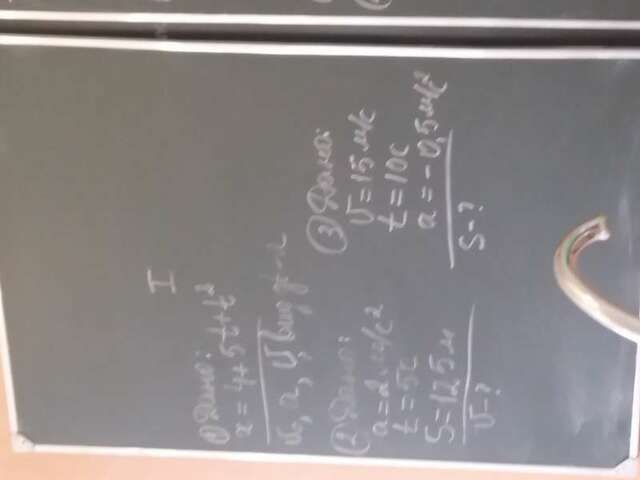 I
① Дано:
x = 4+5t+t²
v₀, a, v, вид дв-я
② Дано:
a = 2 м/с²
t = 5с
S = 125 м
v - ?
③ Дано:
v = 15 м/с
t = 10с
a = - 0,5 м/с²
S - ?